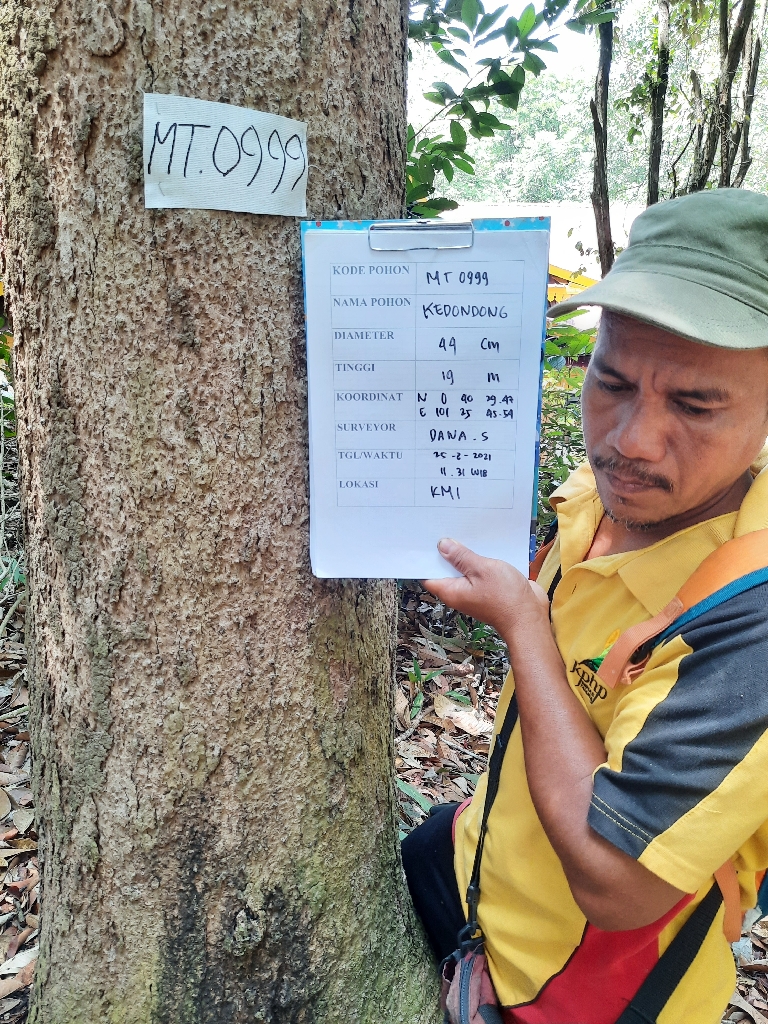 MT.0999
KODE POHON MT 0999
NAMA POHON KEDONDONG
DIAMETER 44 CM
TINGGI 19 M
KOORDINAT N 0 40 29.47
E 101 25 45.54
SURVEYOR DAWA.S
TGL/WAKTU 25-2-2021
11.31 WIB
LOKASI KMI
kphp